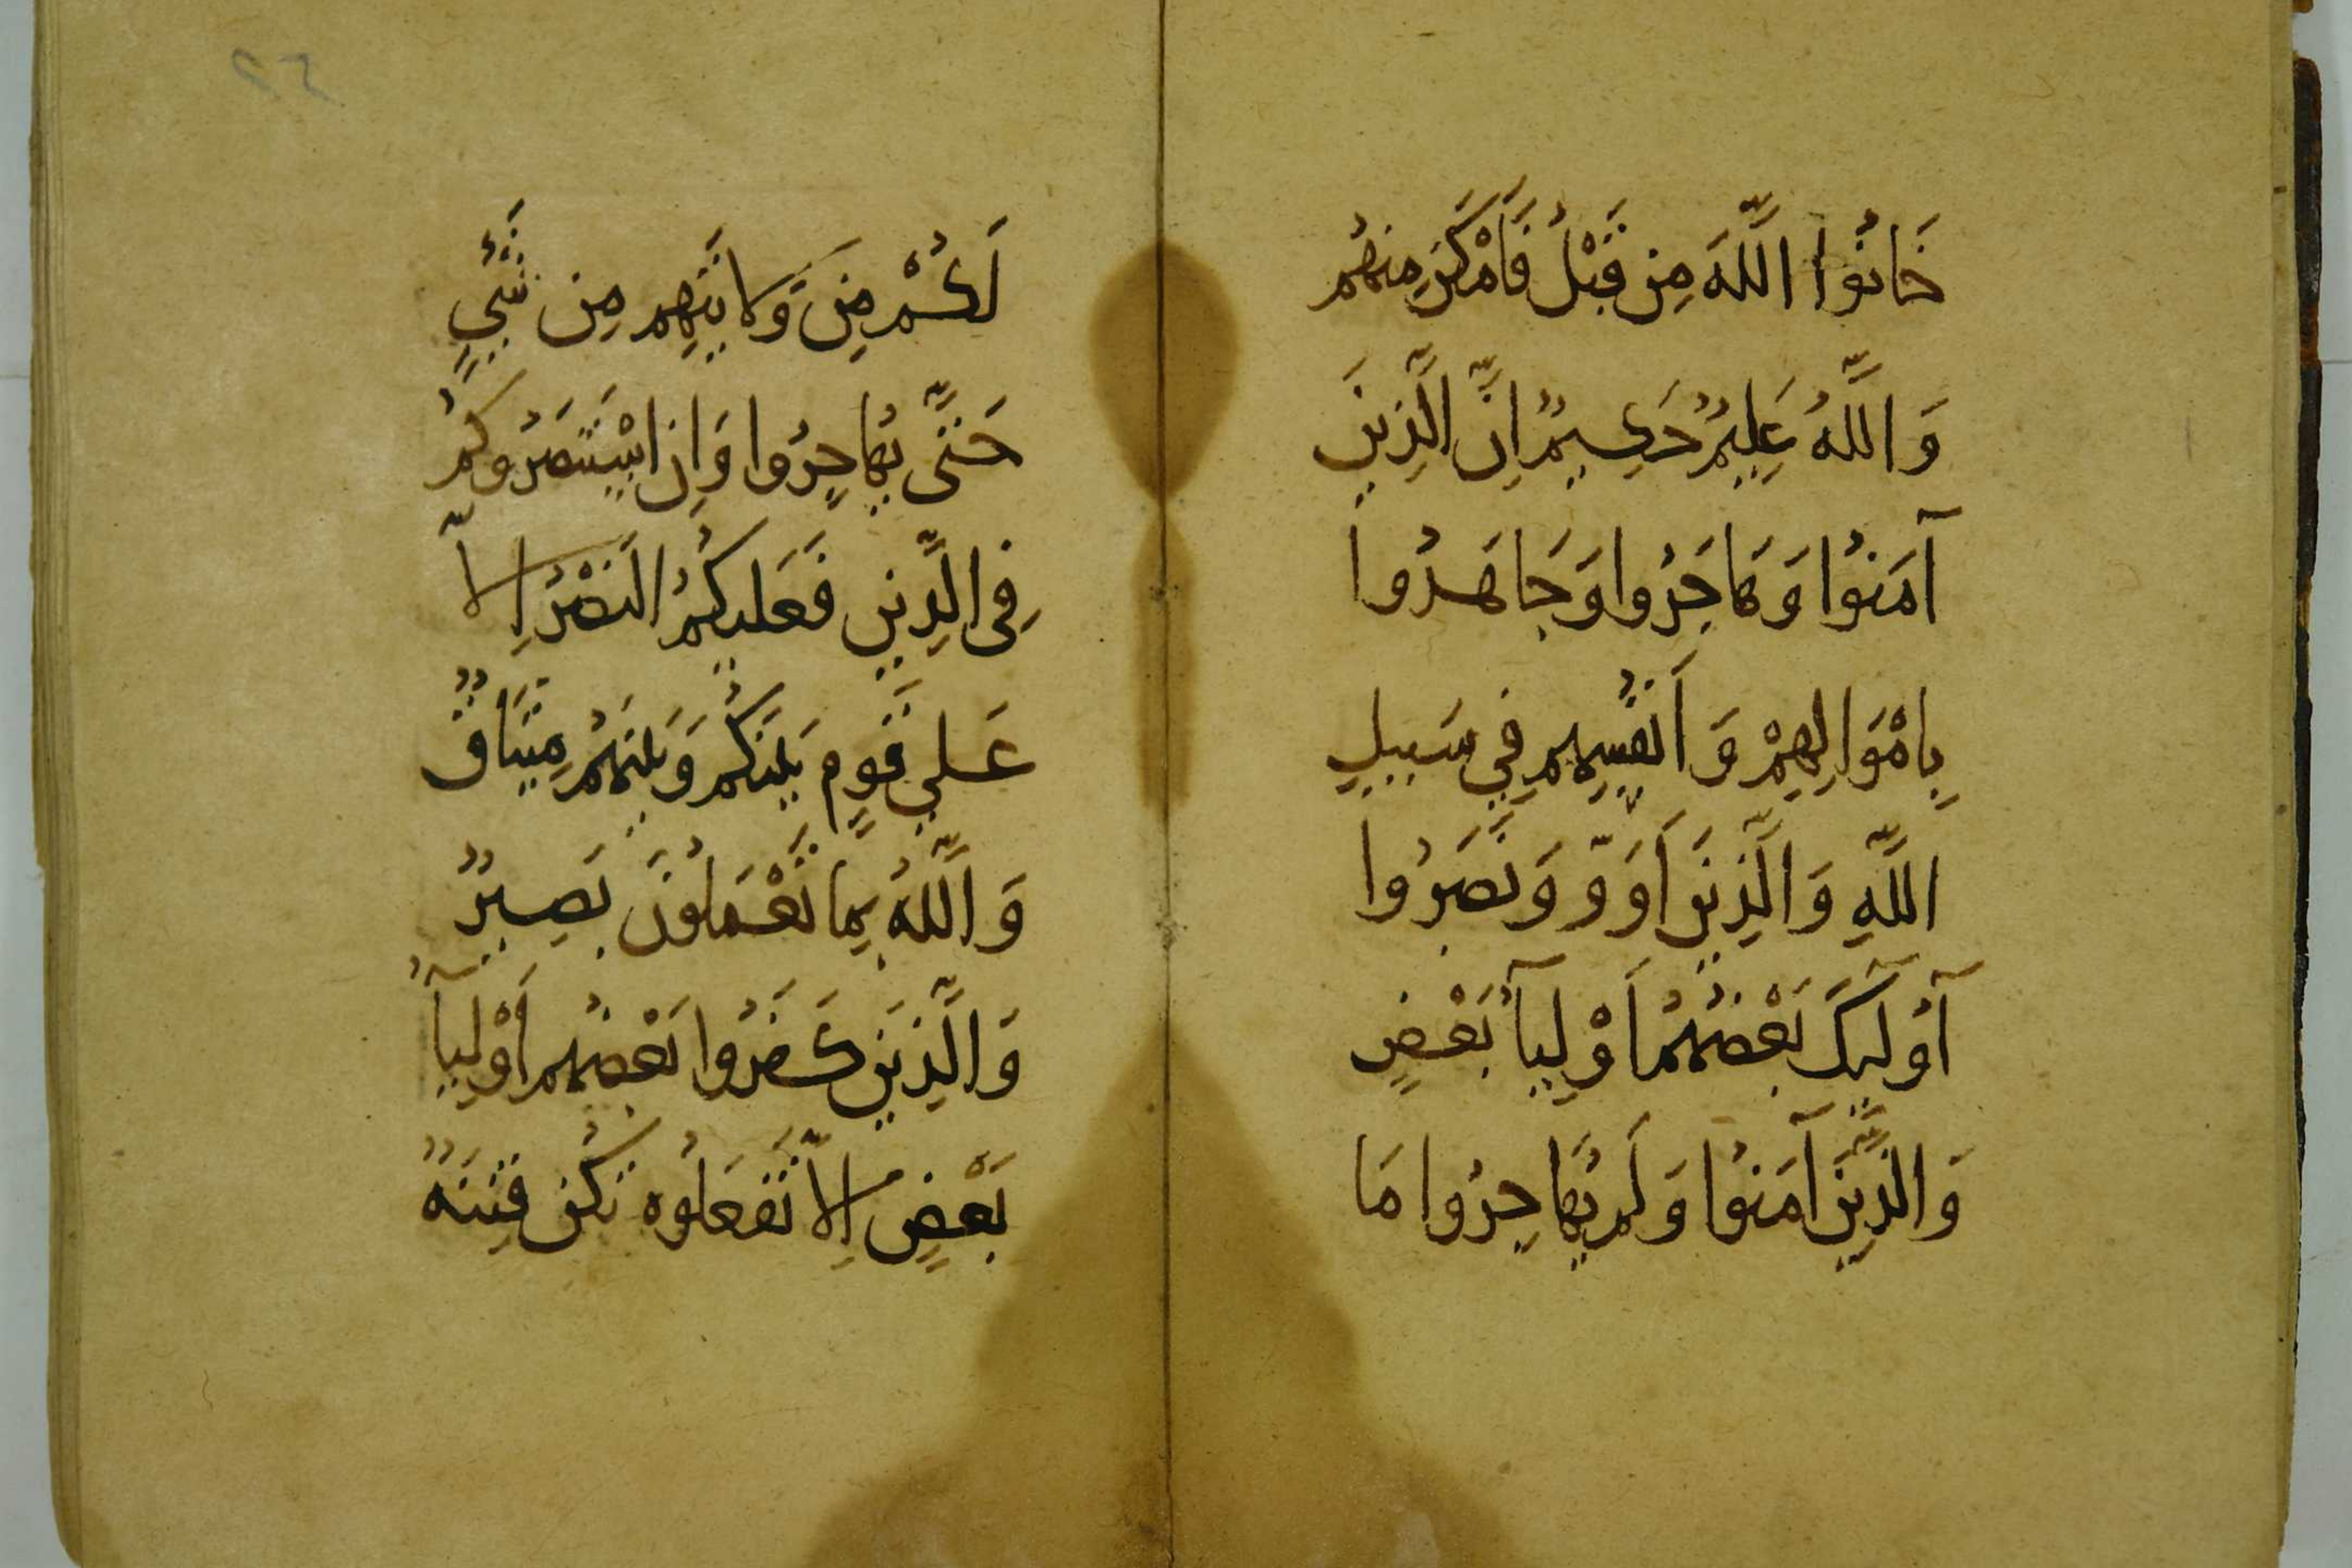 خَانُوا اللَّهَ مِن قَبْلُ فَأَمْكَنَ مِنهُم
وَاللَّهُ عَلِيمٌ حَكِيمٌ اِنَّ الَّذِينَ
آمَنُوا وَهَاجَرُوا وَجَاهَدُوا
بِامْوَالِهِمْ وَ اَنفُسِهِم فِي سَبِيلِ
اللَّهِ وَالَّذِينَ اَوَوّ وَنَصَرُوا
آُولَيِكَ بَعْضُهُمْ اَوْلِيآُ بَعْضٍ
وَالَّذِينَ آمَنُوا وَلَم يُهَاجِرُوا مَا
لَكُمْ مِن وَّلَايَتِهِم مِن شَيٍ
حَتَّى يُهَاجِرُوا وَاِن اسْتَنصَرُوكُمْ
فِي الدِّينِ فَعَلَيكُمُ النَصْرُ اِلاّ
عَلي قَومٍ بَينَكُم وَبَينَهُمْ مِيثَاقٌ
وَاللَّهُ بِمَا تَعْمَلُونَ بَصِيرٌ
وَالَّذِينَ كَفَرُوا بَعْضُهُم اَوْلِيآُ
بَعْضٍ اِلاّ تَفعَلُوه تَكُن فِتنَةٌ
٢٤